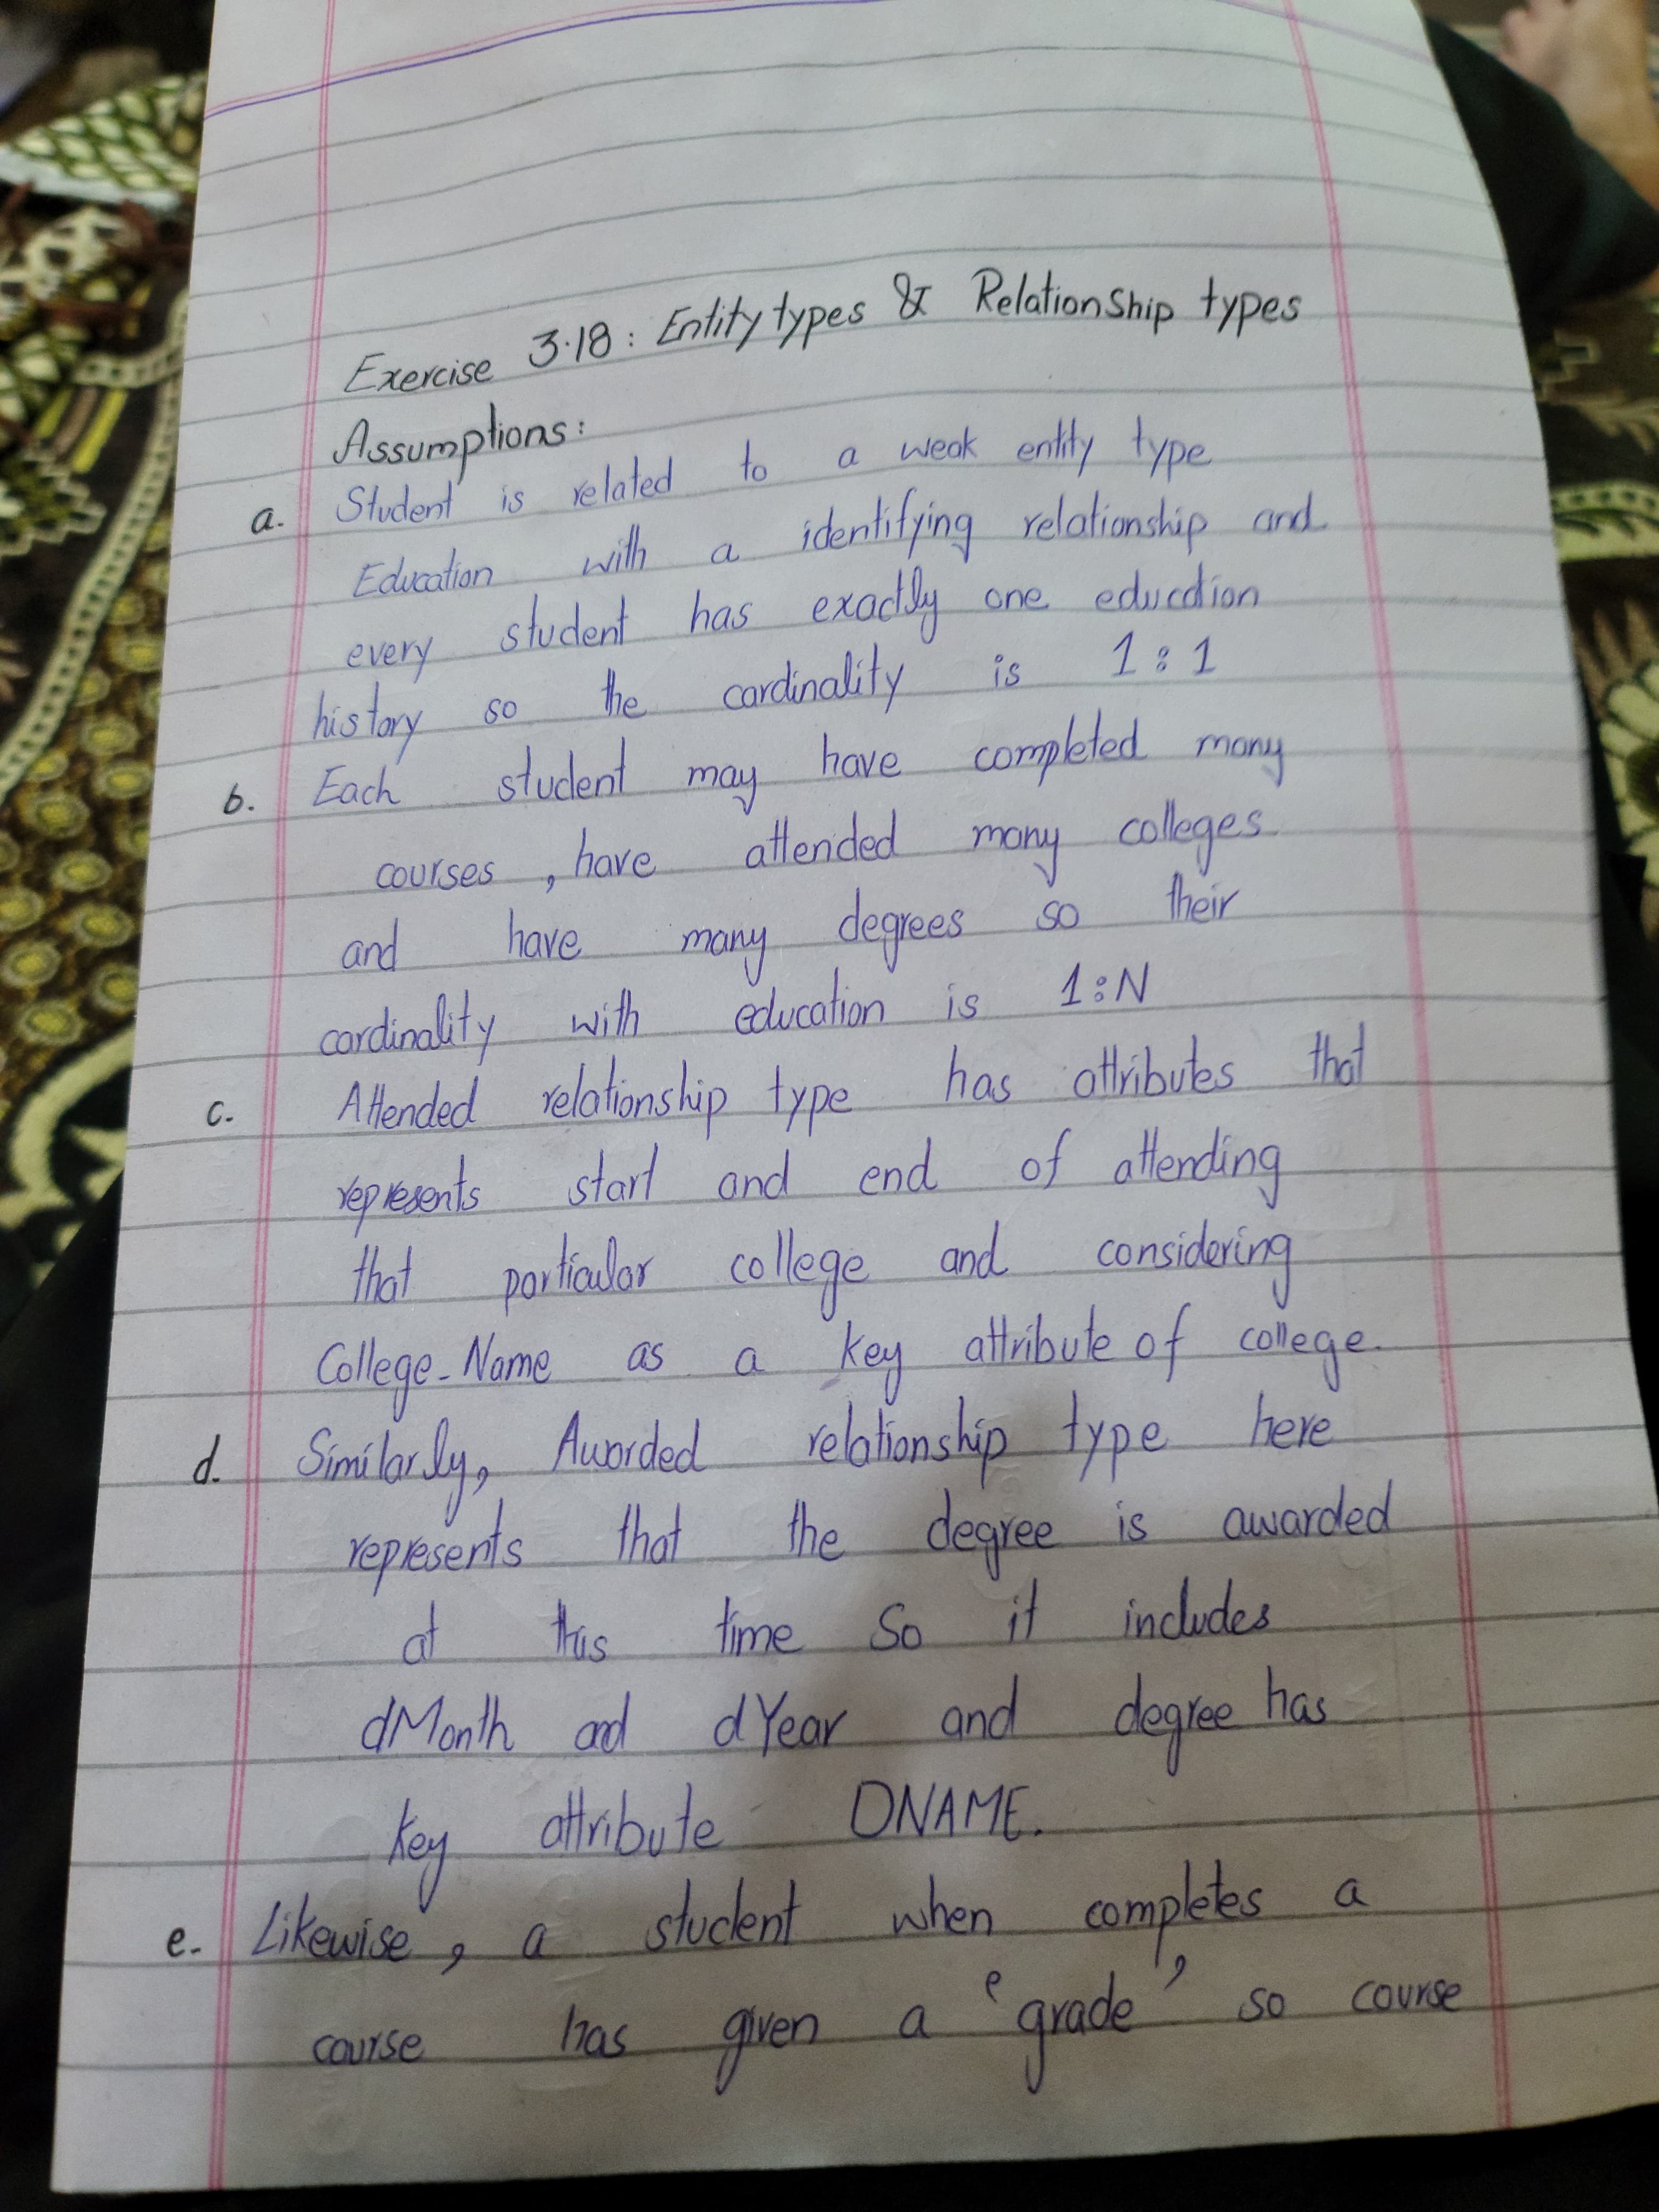 Exercise 3.18: Entity types & Relationship types
Assumptions:
a. Student is related to a weak entity type
Education with a identifying relationship and
every student has exactly one education
history so the cardinality is 1:1
b. Each student may have completed many
courses, have attended many colleges
and have many degrees so their
cardinality with education is 1:N
c. Attended relationship type has attributes that
represents start and end of attending
that particular college and considering
College-Name as a key attribute of college.
d. Similarly, Awarded relationship type here
represents that the degree is awarded
at this time So it includes
dMonth and dYear and degree has
key attribute DNAME.
e. Likewise, a student when completes a
course has given a 'grade' so course